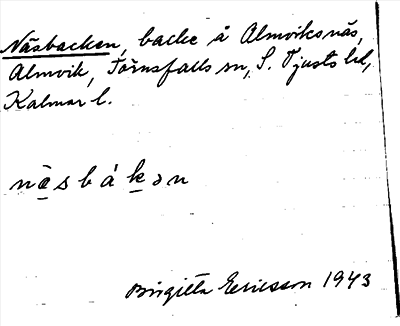 Näsbacken, backe å Almviksnäs,
Almvik, Törnsfalls sn, S. Tjusts hd,
Kalmar l.
nä̱sbák̠ən
Birgitta Ericsson 1943